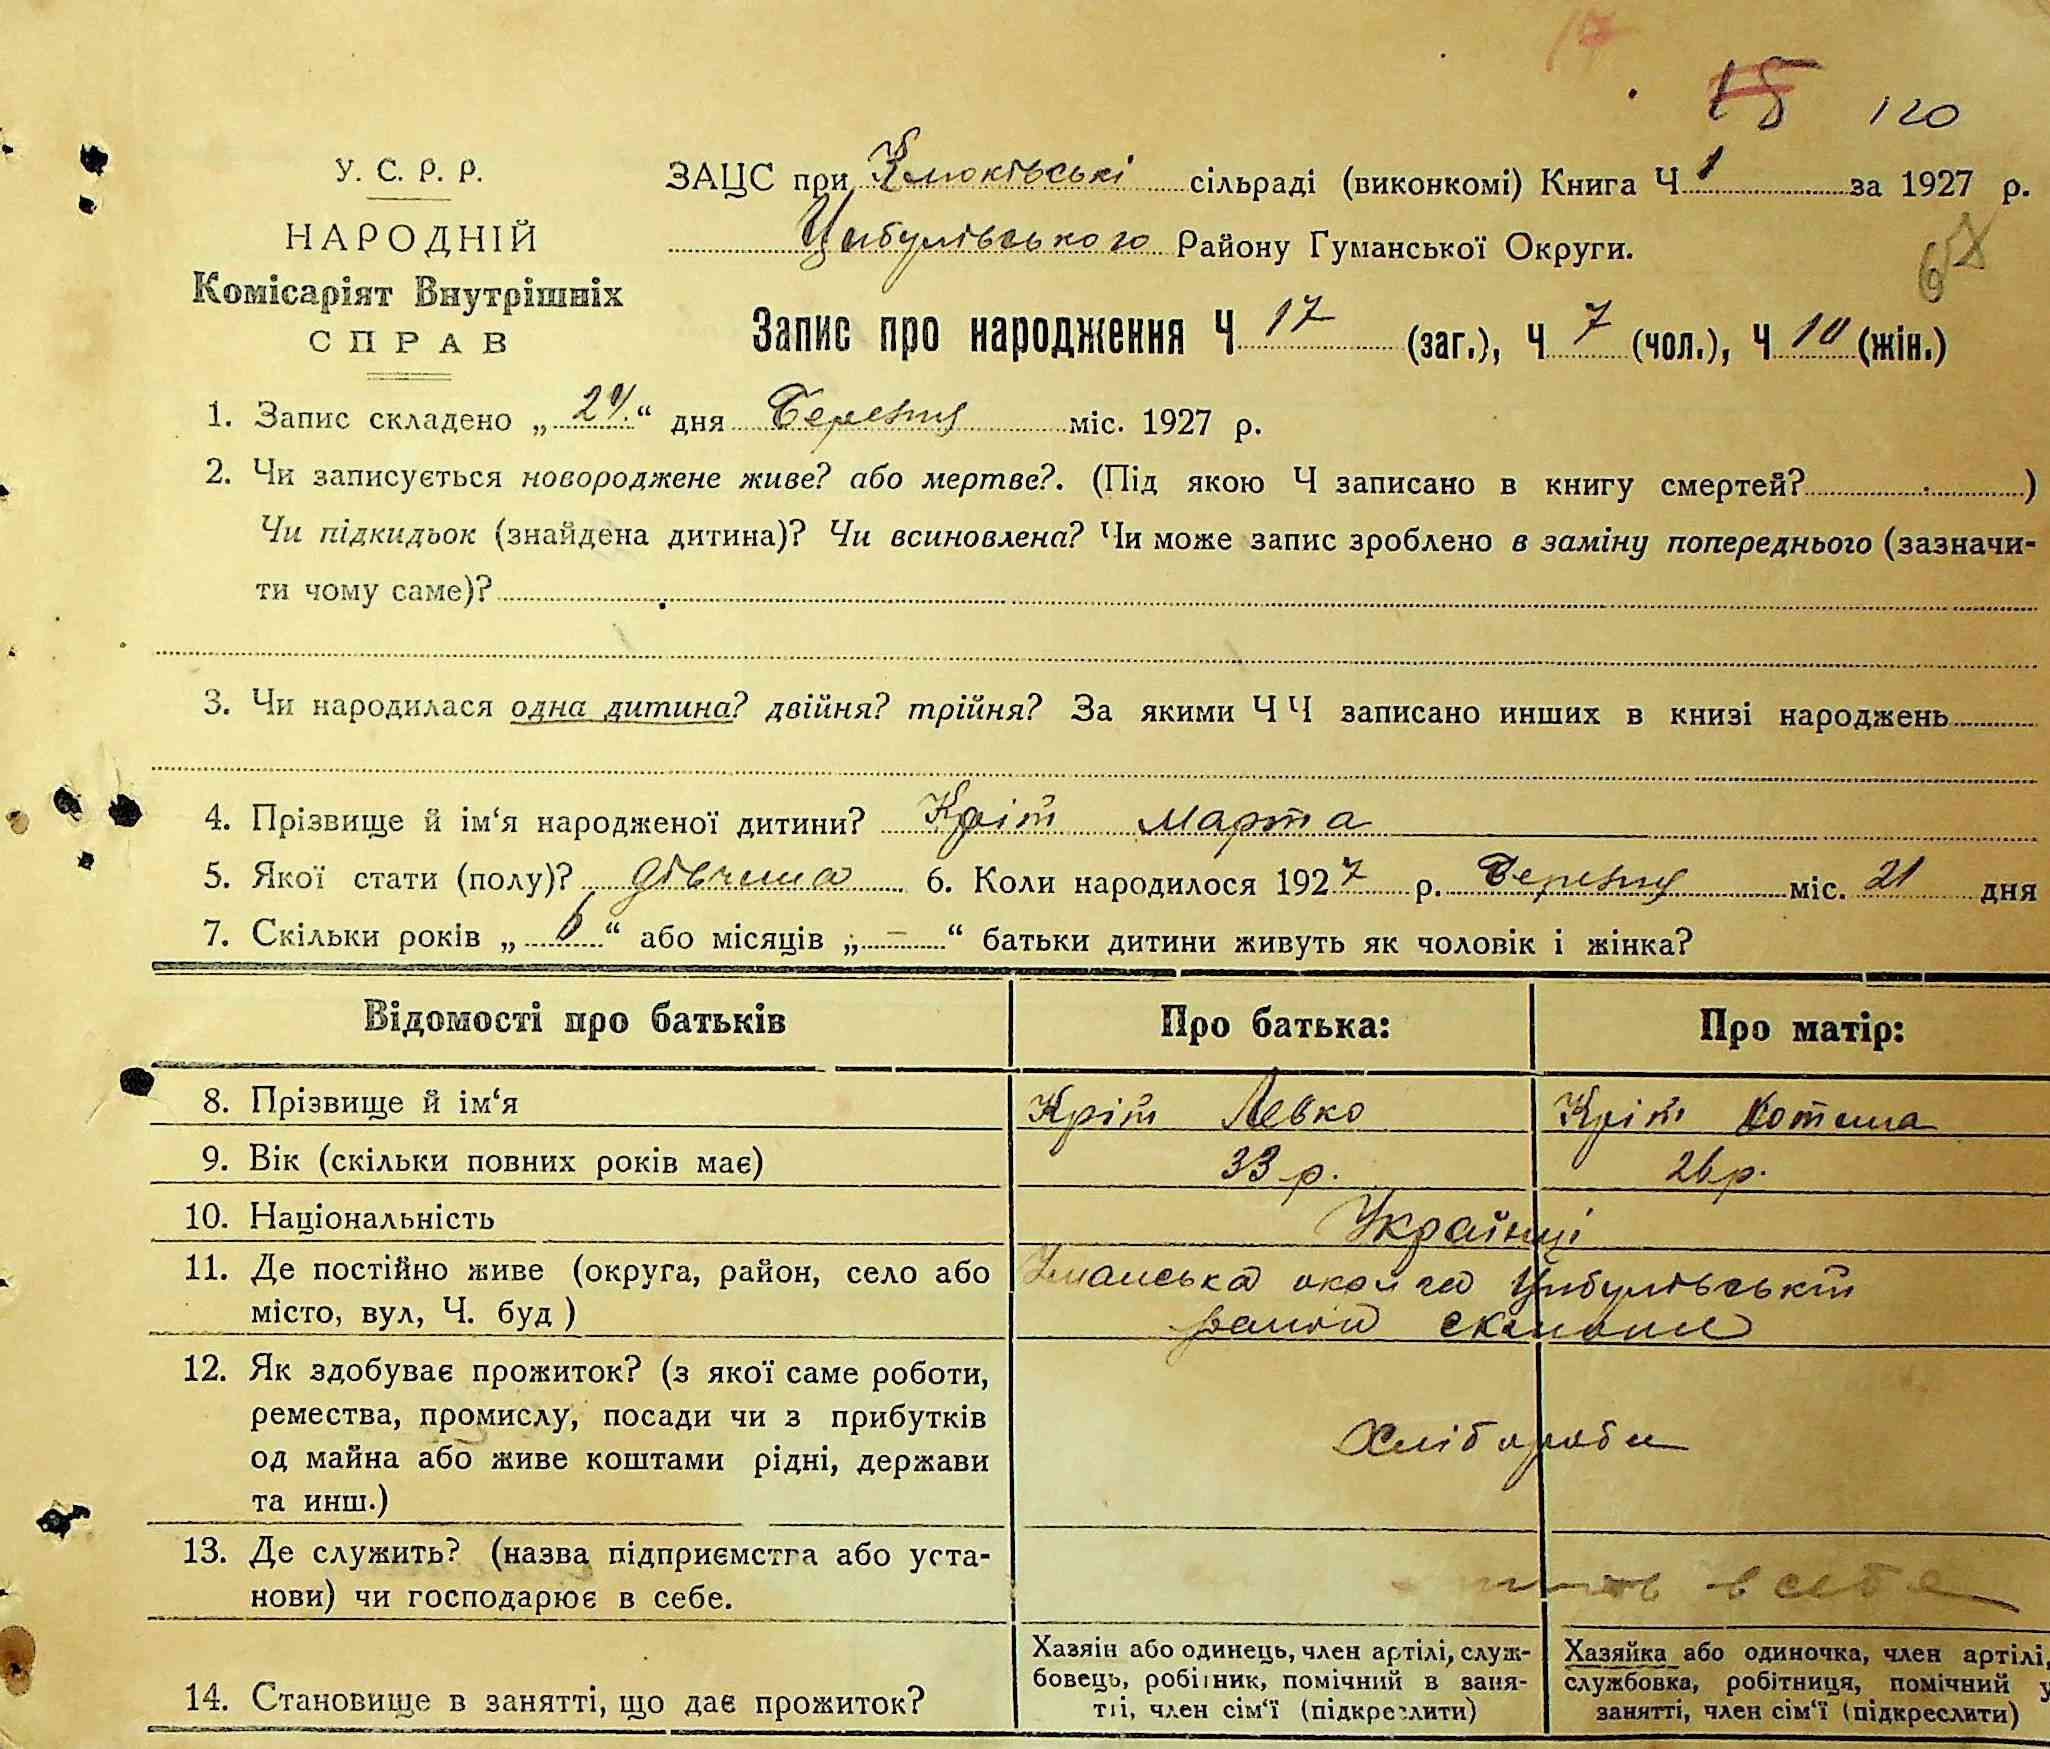 17
15 120
У. С. Р. Р.
ЗАЦС при сільраді (виконкомі) Книга Ч 1 за 1927 р.
НАРОДНІЙ
Цибулівського Району Гуманської Округи.
67
Комісаріят Внутрішніх
СПРАВ
Запис про народження Ч 17 (заг.), Ч 7 (чол.), Ч 10 (жін.)
1. Запис складено „ “ дня Березня міс. 1927 р.
2. Чи записується новороджене живе? або мертве?. (Під якою Ч записано в книгу смертей? )
Чи підкидьок (знайдена дитина)? Чи всиновлена? Чи може запис зроблено в заміну попереднього (зазначи-
ти чому саме)?
3. Чи народилася одна дитина? двійня? трійня? За якими Ч Ч записано инших в книзі народжень
4. Прізвище й ім‘я народженої дитини? Кріт Марта
5. Якої стати (полу)? дівчина 6. Коли народилося 1927 р. Березня міс. 21 дня
7. Скільки років „ 6 “ або місяців „ – “ батьки дитини живуть як чоловік і жінка?
Відомості про батьків Про батька: Про матір:
8. Прізвище й ім‘я Кріт Левко Кріт
9. Вік (скільки повних років має) 33 р. 26 р.
10. Національність Українці
11. Де постійно живе (округа, район, село або Уманська округа Цибулівський
місто, вул, Ч. буд ) район
12. Як здобуває прожиток? (з якої саме роботи,
ремества, промислу, посади чи з прибутків
од майна або живе коштами рідні, держави Хлібороби
та инш.)
13. Де служить? (назва підприємства або уста-
нови) чи господарює в себе. в себе
14. Становище в занятті, що дає прожиток?
Хазяін або одинець, член артілі, служ-
бовець, робітник, помічний в заня-
тті, член сім‘ї (підкреслити)
Хазяйка або одиночка, член артілі,
службовка, робітниця, помічний у
занятті, член сім‘ї (підкреслити)